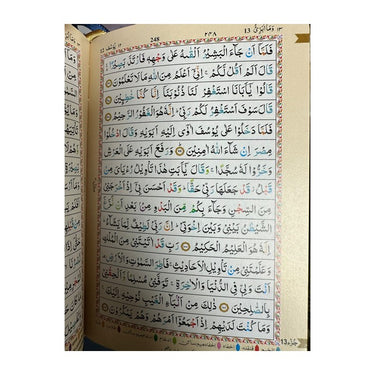 وَمَآ اُبَرِّئُ 13 248 ٢٣٨ يُوْسُف ١٢
فَلَمَّآ اَنْ جَآءَ الْبَشِيْرُ اَلْقٰىهُ عَلٰى وَجْهِهٖ فَارْتَدَّ بَصِيْرًا
قَالَ اَلَمْ اَقُلْ لَّكُمْ اِنِّىْٓ اَعْلَمُ مِنَ اللّٰهِ مَا لَا تَعْلَمُوْنَ
قَالُوْا يٰٓاَبَانَا اسْتَغْفِرْ لَنَا ذُنُوْبَنَآ اِنَّا كُنَّا خٰطِـِٕيْنَ
قَالَ سَوْفَ اَسْتَغْفِرُ لَكُمْ رَبِّىْ اِنَّهٗ هُوَ الْغَفُوْرُ الرَّحِيْمُ
فَلَمَّا دَخَلُوْا عَلٰى يُوْسُفَ اٰوٰٓى اِلَيْهِ اَبَوَيْهِ وَقَالَ ادْخُلُوْا
مِصْرَ اِنْ شَآءَ اللّٰهُ اٰمِنِيْنَ وَرَفَعَ اَبَوَيْهِ عَلَى الْعَرْشِ
وَخَرُّوْا لَهٗ سُجَّدًا وَقَالَ يٰٓاَبَتِ هٰذَا تَاْوِيْلُ رُءْيَاىَ مِنْ
قَبْلُ قَدْ جَعَلَهَا رَبِّىْ حَقًّا وَقَدْ اَحْسَنَ بِىْٓ اِذْ اَخْرَجَنِىْ
مِنَ السِّجْنِ وَجَآءَ بِكُمْ مِّنَ الْبَدْوِ مِنْۢ بَعْدِ اَنْ نَّزَغَ
الشَّيْطٰنُ بَيْنِىْ وَبَيْنَ اِخْوَتِىْ اِنَّ رَبِّىْ لَطِيْفٌ لِّمَا يَشَآءُ
اِنَّهٗ هُوَ الْعَلِيْمُ الْحَكِيْمُ رَبِّ قَدْ اٰتَيْتَنِىْ مِنَ الْمُلْكِ
وَعَلَّمْتَنِىْ مِنْ تَاْوِيْلِ الْاَحَادِيْثِ فَاطِرَ السَّمٰوٰتِ وَالْاَرْضِ
اَنْتَ وَلِىّٖ فِى الدُّنْيَا وَالْاٰخِرَةِ تَوَفَّنِىْ مُسْلِمًا وَّاَلْحِقْنِىْ
بِالصّٰلِحِيْنَ ذٰلِكَ مِنْ اَنْۢبَآءِ الْغَيْبِ نُوْحِيْهِ اِلَيْكَ
وَمَا كُنْتَ لَدَيْهِمْ اِذْ اَجْمَعُوْٓا اَمْرَهُمْ وَهُمْ يَمْكُرُوْنَ